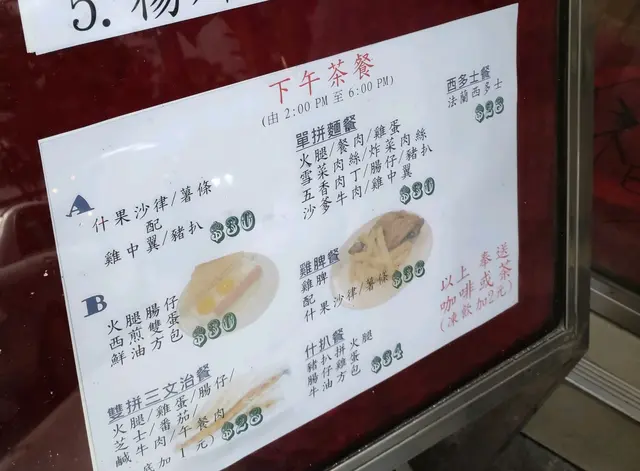 5. 
下午茶餐
(由 2:00 PM 至 6:00 PM)
A
什果沙律/薯條
配
雞中翼/豬扒
$30
B
火腿腸仔
西煎雙蛋
鮮油方包
$30
雙拼三文治餐
火腿/雞蛋/腸仔/
芝士/番茄/
鹹牛肉/午餐肉
底加1元)
$28
單拼麵餐
火腿/餐肉/雞蛋
雪菜肉絲/炸菜肉絲
五香肉丁/腸仔/豬扒
沙爹牛肉/雞中翼
$30
雞脾餐
雞脾
配
什果沙律/薯條
$36
什扒餐
豬扒拼火腿
腸仔雞蛋
牛油方包
$34
西多士餐
法蘭西多士
$26
以上奉送
咖啡或茶
(凍飲加2元)